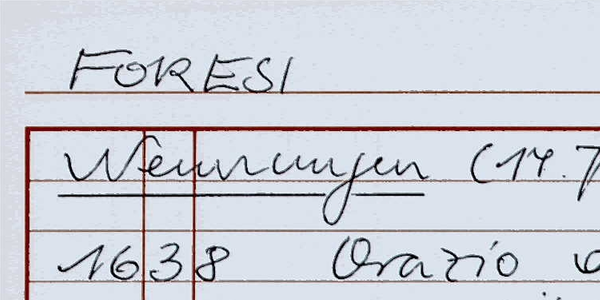 FORESI
Nennungen (14.
1638 Orazio